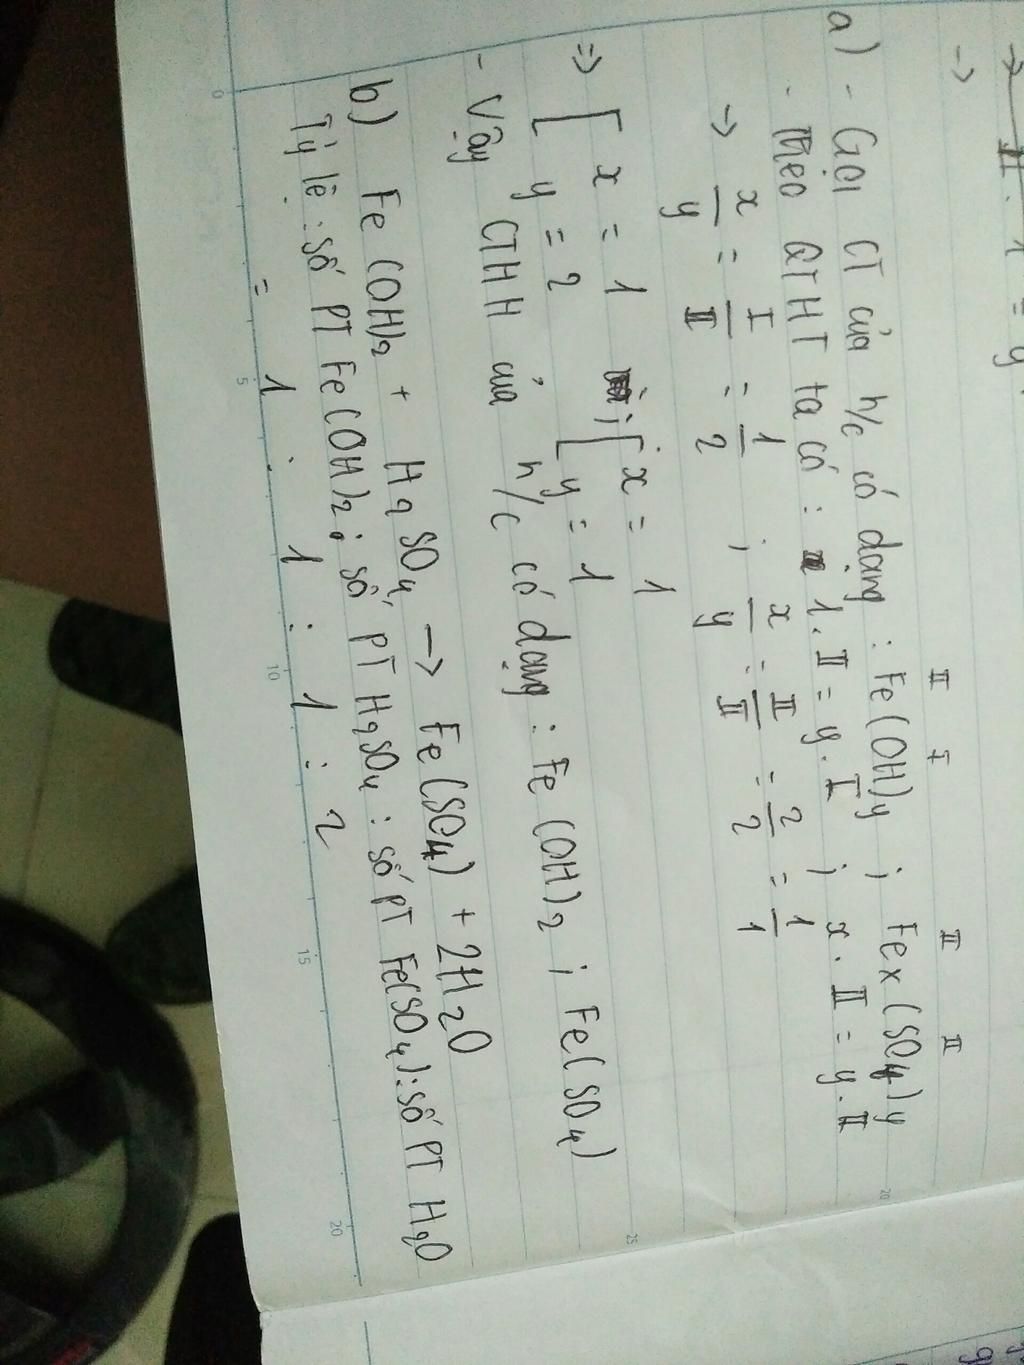 II I II II
a) - Gọi CT của h/c có dạng : Fe(OH)y ; Fex(SO4)y
- Theo QTHT ta có : 1.II = y.I ; x.II = y.II
-> x/y = I/II = 1/2 ; x/y = II/II = 2/2 = 1/1
=> [ x = 1 ; [ x = 1
y = 2 y = 1
- Vậy CTHH của h/c có dạng : Fe(OH)2 ; Fe(SO4)
b) Fe(OH)2 + H2SO4 -> Fe(SO4) + 2H2O
Tỷ lệ : số PT Fe(OH)2 : số PT H2SO4 : số PT Fe(SO4) : số PT H2O
= 1 : 1 : 1 : 2
0 5 10 15 20
20
25